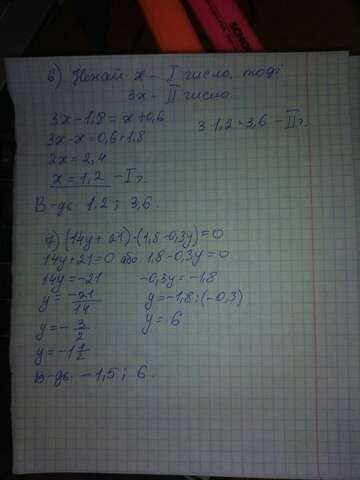 SCHO
6) Нехай x - I число, тоді
3x - II число.
3x - 1,8 = x + 0,6
3x - x = 0,6 + 1,8
2x = 2,4
x = 1,2 - I ч.
3·1,2 = 3,6 - II ч.
В-дь. 1,2 ; 3,6.
7) (14y + 21)·(1,8 - 0,3y) = 0
14y + 21 = 0 або 1,8 - 0,3y = 0
14y = -21 -0,3y = -1,8
y = -21/14 y = -1,8 : (-0,3)
y = - 3/2 y = 6
y = -1 1/2
В-дь. -1,5 ; 6.